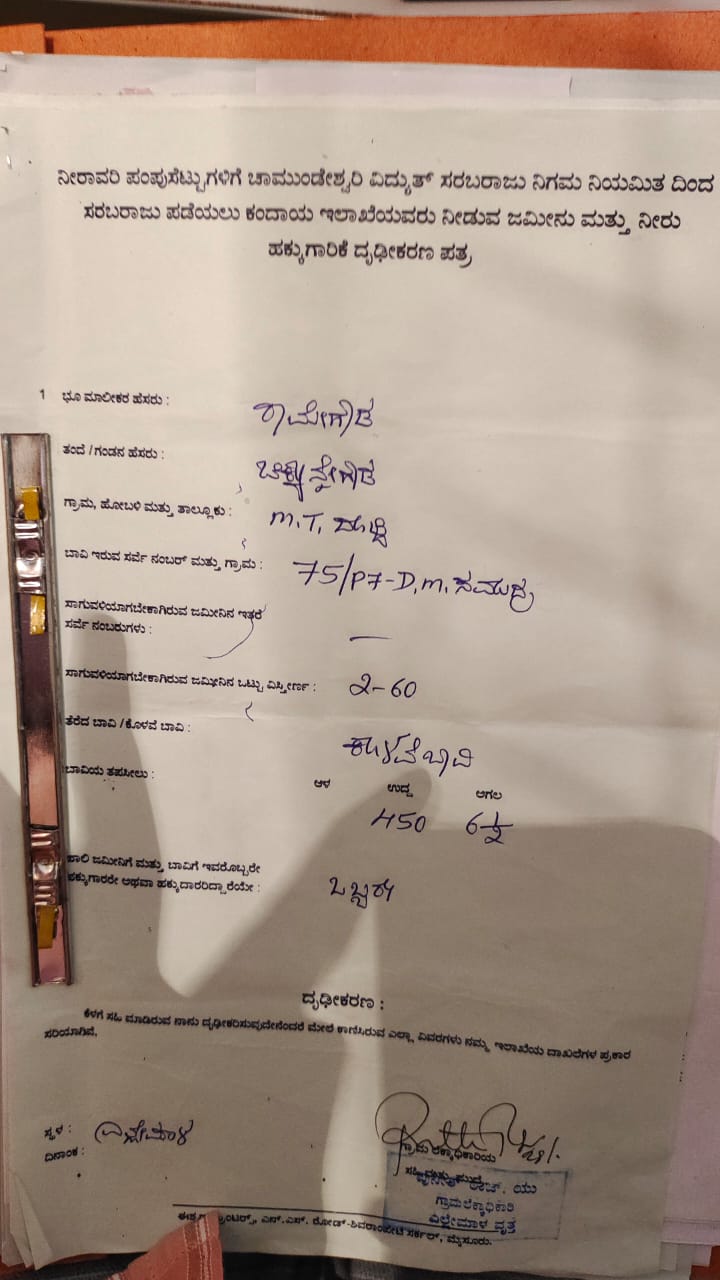 ನೀರಾವರಿ ಪಂಪುಸೆಟ್ಟುಗಳಿಗೆ ಚಾಮುಂಡೇಶ್ವರಿ ವಿದ್ಯುತ್ ಸರಬರಾಜು ನಿಗಮ ನಿಯಮಿತ ದಿಂದ
ಸರಬರಾಜು ಪಡೆಯಲು ಕಂದಾಯ ಇಲಾಖೆಯವರು ನೀಡುವ ಜಮೀನು ಮತ್ತು ನೀರು
ಹಕ್ಕುಗಾರಿಕೆ ದೃಢೀಕರಣ ಪತ್ರ
1 ಭೂ ಮಾಲೀಕರ ಹೆಸರು : ರಾಮೇಗೌಡ
ತಂದೆ / ಗಂಡನ ಹೆಸರು :
ಗ್ರಾಮ, ಹೋಬಳಿ ಮತ್ತು ತಾಲ್ಲೂಕು : M.T.
ಬಾವಿ ಇರುವ ಸರ್ವೆ ನಂಬರ್ ಮತ್ತು ಗ್ರಾಮ : 75/P7-D.M. ಸಮುದ್ರ
ಸಾಗುವಳಿಯಾಗಬೇಕಾಗಿರುವ ಜಮೀನಿನ ಇತರೆ
ಸರ್ವೆ ನಂಬರುಗಳು : —
ಸಾಗುವಳಿಯಾಗಬೇಕಾಗಿರುವ ಜಮೀನಿನ ಒಟ್ಟು ವಿಸ್ತೀರ್ಣ : 2-60
ತೆರೆದ ಬಾವಿ / ಕೊಳವೆ ಬಾವಿ : ಕೊಳವೆಬಾವಿ
ಬಾವಿಯ ತಪಸೀಲು : ಆಳ ಉದ್ದ ಅಗಲ
450 6½
ಖಾಲಿ ಜಮೀನಿಗೆ ಮತ್ತು ಬಾವಿಗೆ ಇವರೊಬ್ಬರೇ
ಹಕ್ಕುಗಾರರೇ ಅಥವಾ ಹಕ್ಕುದಾರರಿದ್ದಾರೆಯೇ : ಒಬ್ಬರೇ
ದೃಢೀಕರಣ :
ಕೆಳಗೆ ಸಹಿ ಮಾಡಿರುವ ನಾನು ದೃಢೀಕರಿಸುವುದೇನೆಂದರೆ ಮೇಲೆ ಕಾಣಿಸಿರುವ ಎಲ್ಲಾ ವಿವರಗಳು ನಮ್ಮ ಇಲಾಖೆಯ ದಾಖಲೆಗಳ ಪ್ರಕಾರ
ಸರಿಯಾಗಿವೆ.
ಸ್ಥಳ :
ದಿನಾಂಕ :
ಗ್ರಾಮ ಲೆಕ್ಕಾಧಿಕಾರಿಯ
ಸಹಿ ಮತ್ತು ಮುದ್ರೆ
ರಾಜ್. ಯು
ಗ್ರಾಮಲೆಕ್ಕಾಧಿಕಾರಿ
ಎಲ್ಲೇಮಾಳ ವೃತ್ತ
ಪ್ರಿಂಟರ್ಸ್, ಎನ್.ಎಸ್. ರೋಡ್-ಶಿವರಾಂಪೇಟೆ ಸರ್ಕಲ್, ಮೈಸೂರು.